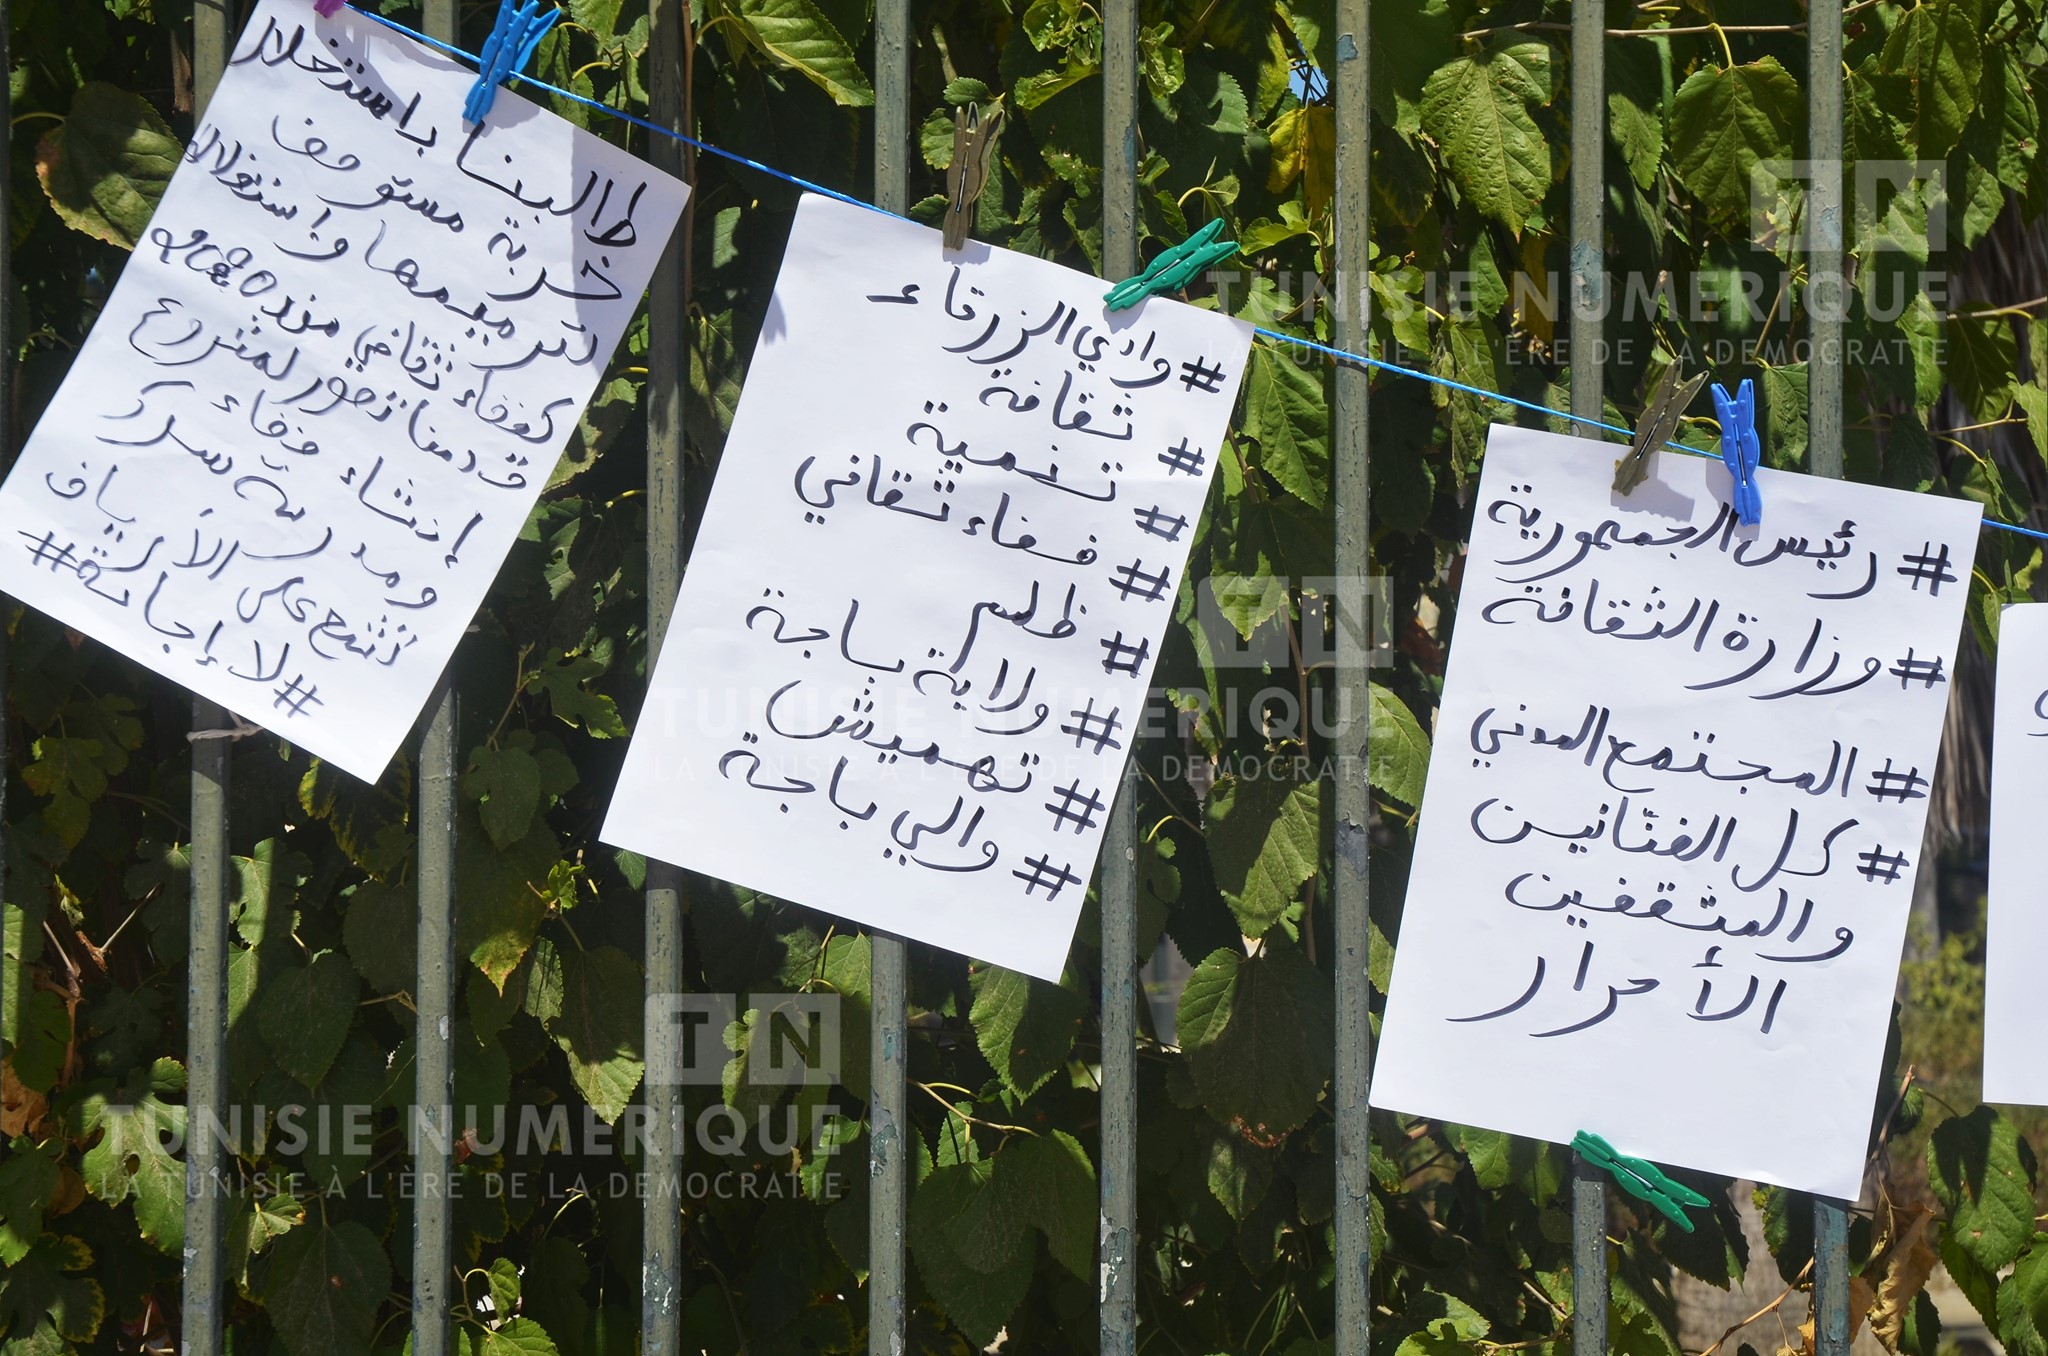 طالبنا باستغلال
خربة مستوصف
لترميمها واستغلالها
كفضاء ثقافي منذ 2020
قدمنا تصور لمشروع
إنشاء فضاء
ومدرسة سرك
تنفتح على الأرياف
#لا إجابة#
#وادي الزرقاء
#ثقافة
#تنمية
#فضاء ثقافي
#ظلم
#ولاية باجة
#تهميش
#والي باجة
#رئيس الجمهورية
#وزارة الثقافة
#المجتمع المدني
#كل الفنّانين
والمثقفين
الأحرار
TN
TUNISIE NUMERIQUE
LA TUNISIE À L'ÈRE DE LA DEMOCRATIE
TN
TUNISIE NUMERIQUE
LA TUNISIE À L'ÈRE DE LA DEMOCRATIE
TN
TUNISIE NUMERIQUE
LA TUNISIE À L'ÈRE DE LA DEMOCRATIE